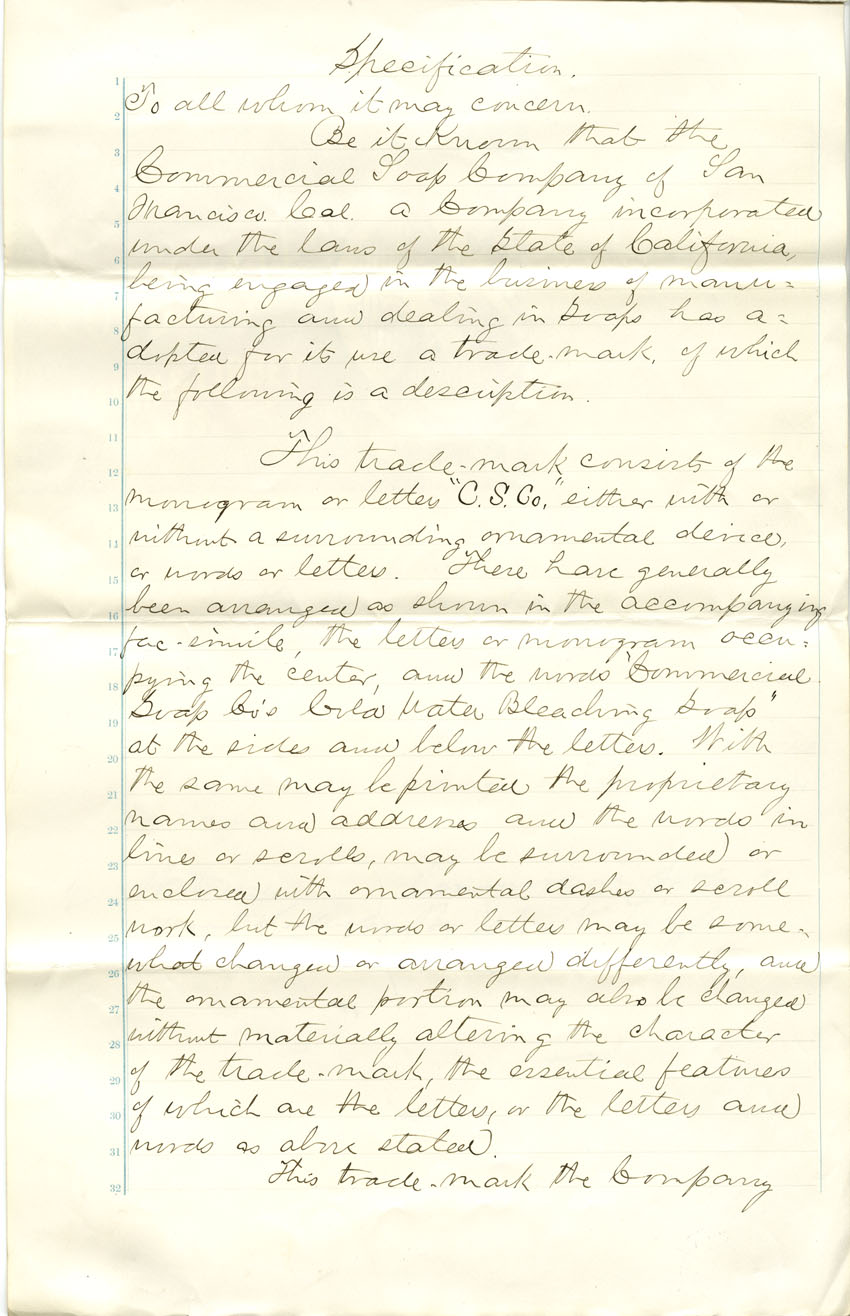 Specification.
1
To all whom it may concern.
2
Be it Known that the
3
Commercial Soap Company of San
4
Francisco. Cal. a Company incorporated
5
under the laws of the State of California,
6
being engaged in the business of manu=
7
facturing and dealing in Soaps has a=
8
dopted for its use a trade-mark, of which
9
the following is a description.
10
11
This trade-mark consists of the
12
monogram or letters "C.S.Co." either with or
13
without a surrounding ornamental device,
14
or words or letters. These have generally
15
been arranged as shown in the accompanying
16
fac-simile, the letters or monogram occu=
17
pying the center, and the words "Commercial
18
Soap Co's Cold Water Bleaching Soap"
19
at the sides and below the letters. With
20
the same may be printed the proprietary
21
names and addresses and the words in
22
lines or scrolls, may be surrounded or
23
enclosed with ornamental dashes or scroll
24
work, but the words or letters may be some-
25
what changed or arranged differently, and
26
the ornamental portion may also be changed
27
without materially altering the character
28
of the trade-mark, the essential features
29
of which are the letters, or the letters and
30
words as above stated.
31
This trade-mark the Company
32